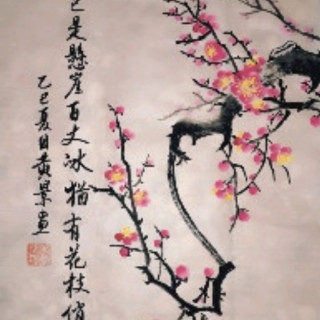 已是悬崖百丈冰猶有花枝俏
乙巳夏日黄景畫